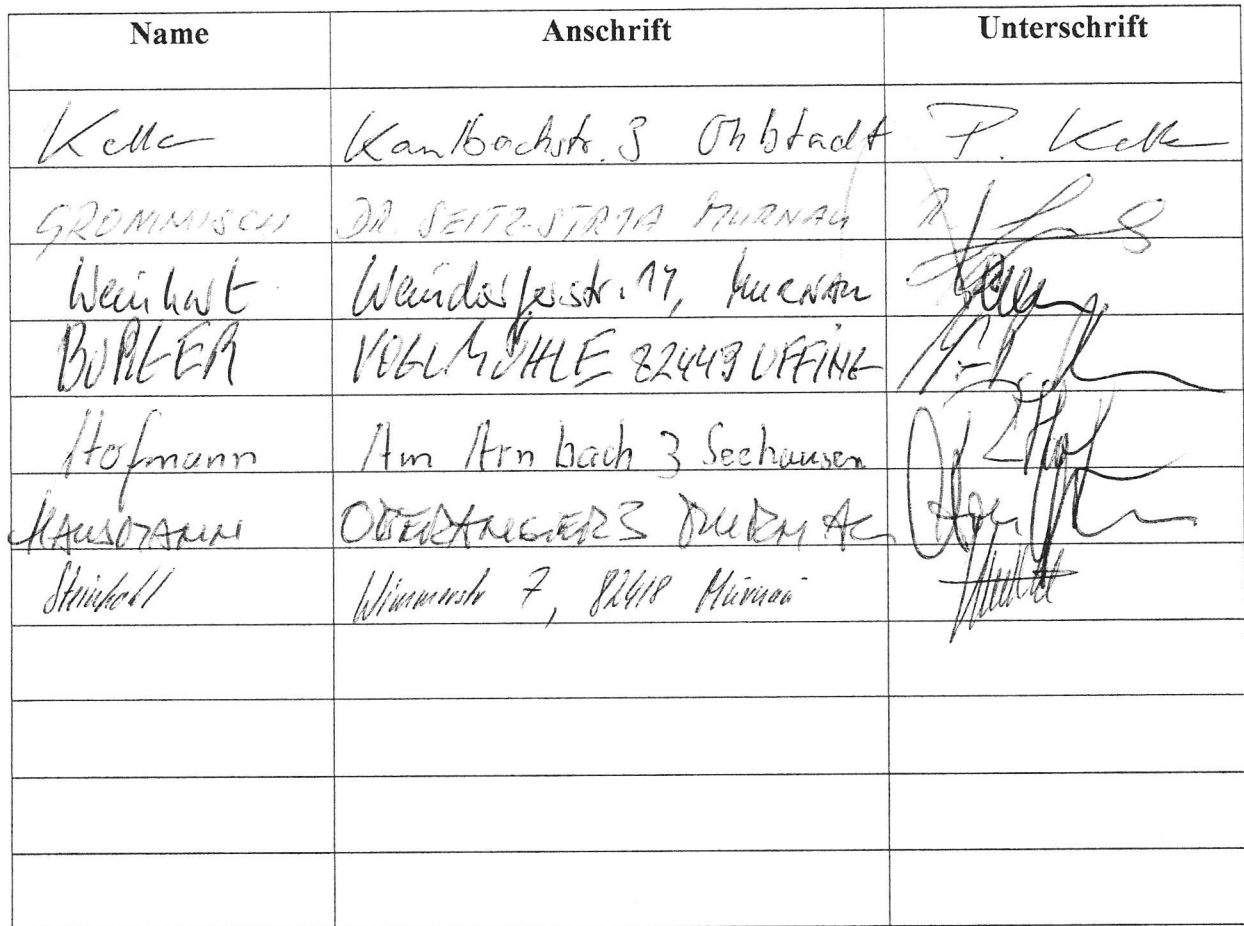 Name Anschrift Unterschrift
Keller Kaulbachstr. 3 Ohlstadt P. Keller
GROMMISCH DR. SEITZ-STR MURNAU
Weinhart Weindorferstr. 17, MURNAU
BURGER VOGLMÜHLE 82449 UFFING
Hofmann Am Arnbach 3 Seehausen Hof
HAUSMANN OBERANGER 3
Steinhohl Wimmerstr 7, 82418 Murnau